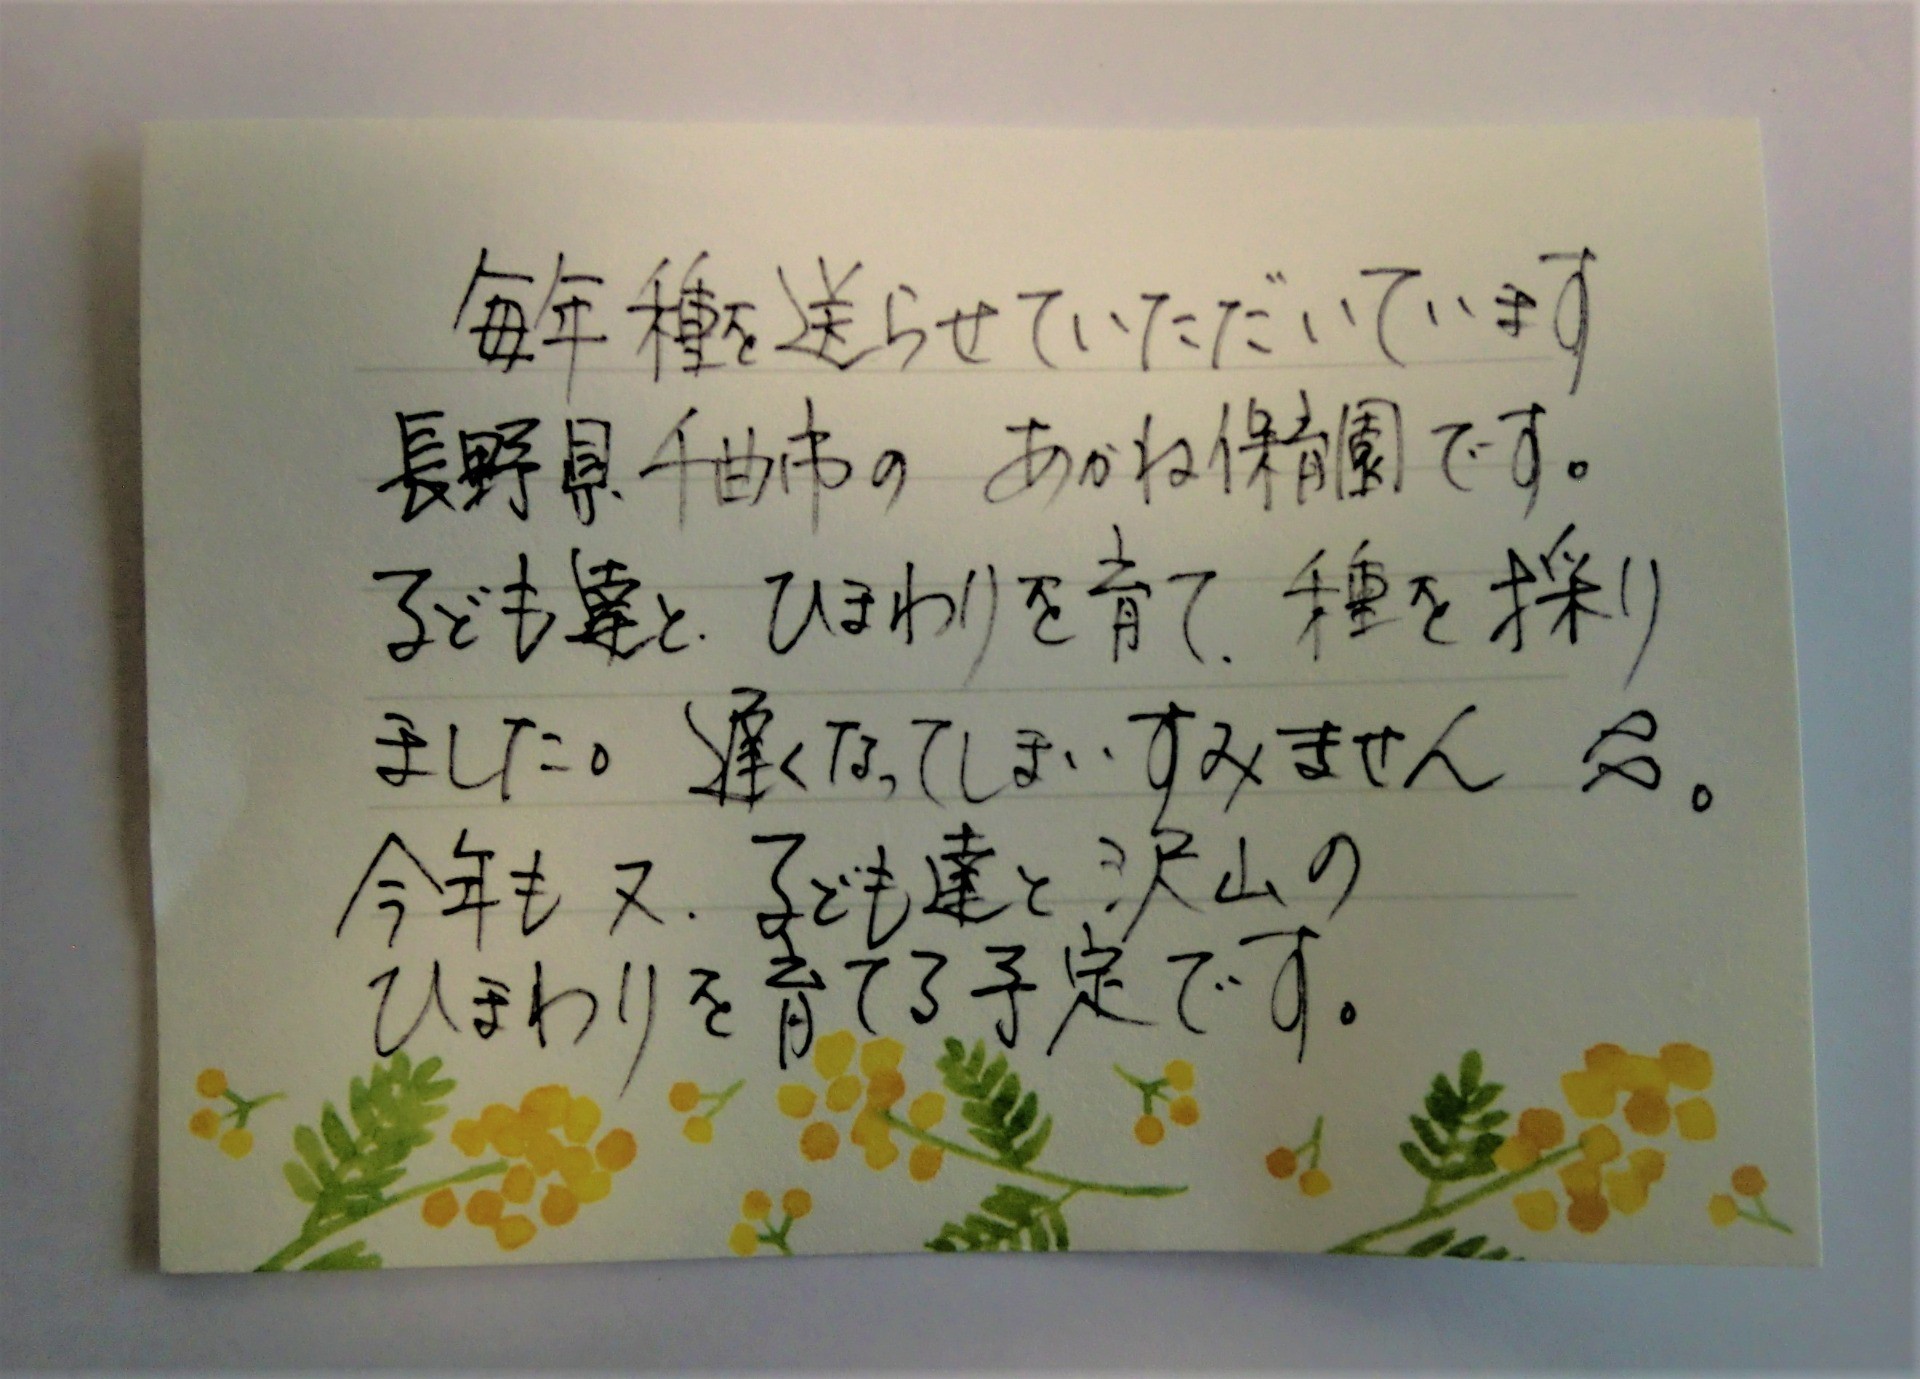 毎年種を送らせていただいています
長野県千曲市の あかね保育園です。
子ども達と、ひまわりを育て、種を採り
ました。遅くなってしまいすみません 。
今年も又、子ども達と沢山の
ひまわりを育てる予定です。